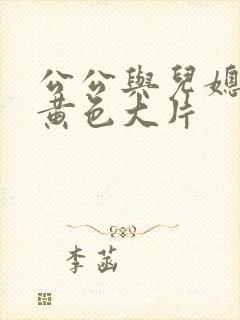 公公與兒媳
黃色大片
李菡